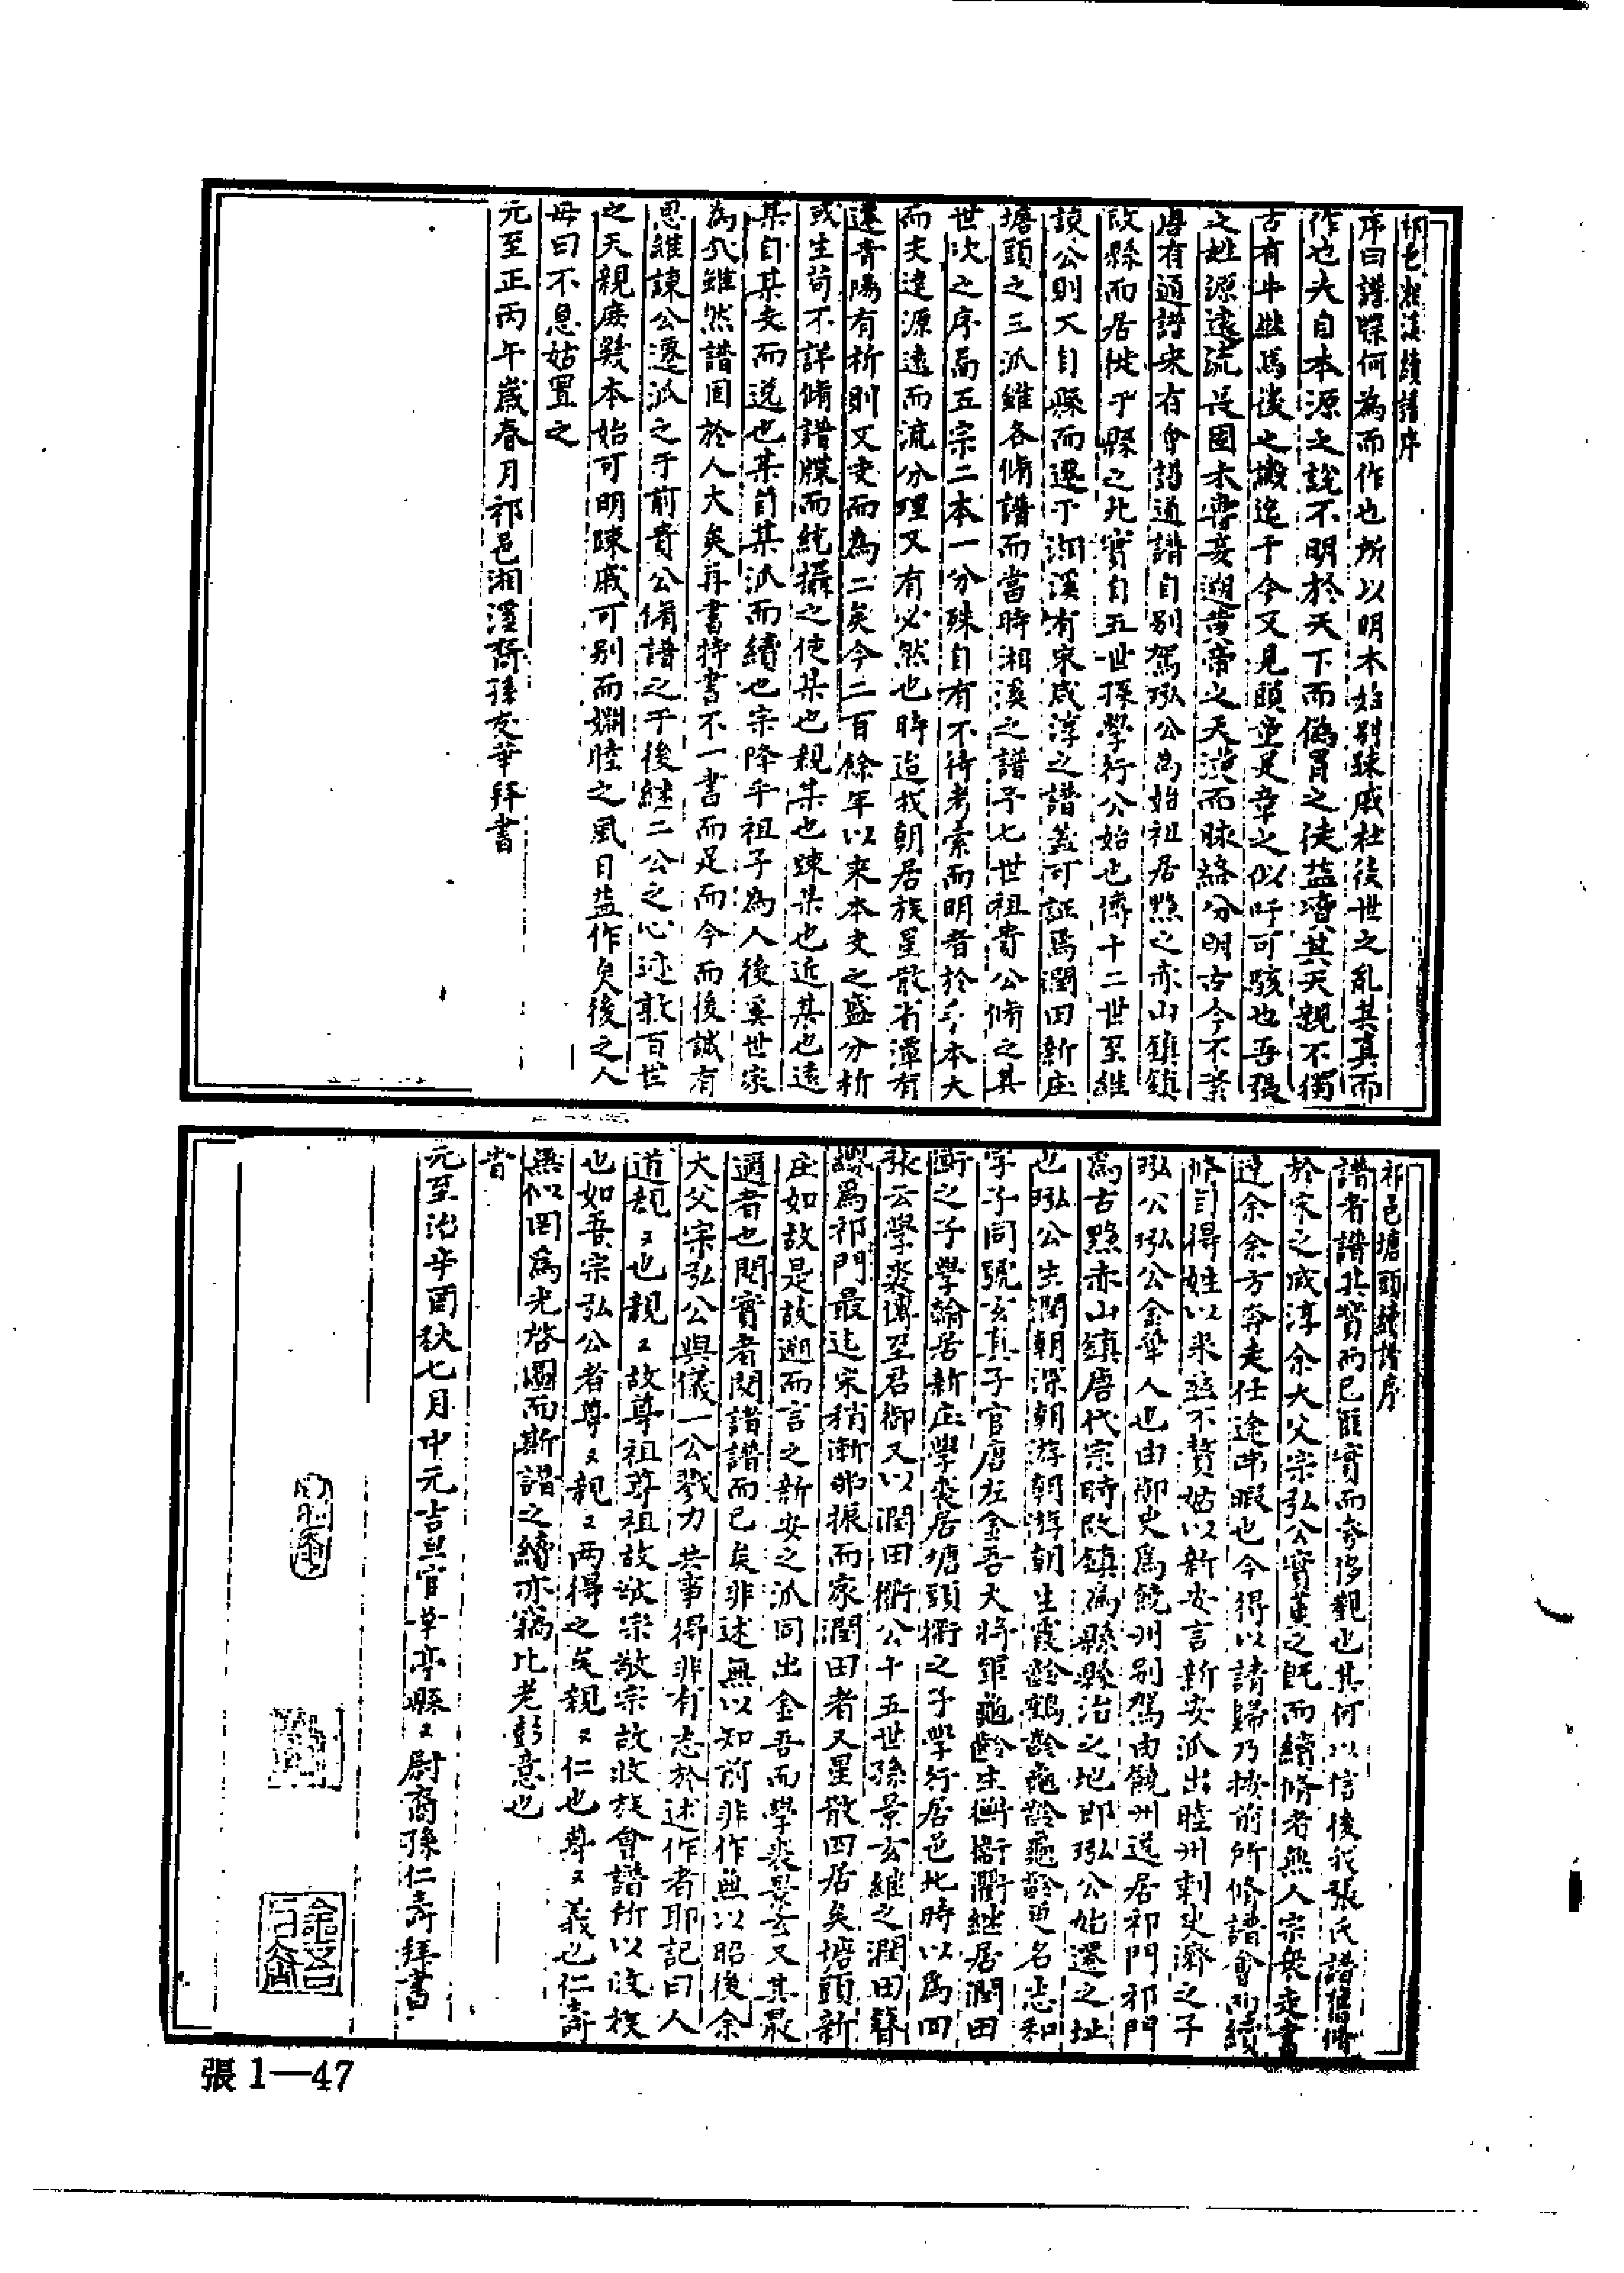 祁邑湘溪續譜序
序曰譜牒何為而作也所以明本始別疎戚杜後世之亂其真而
作也夫自本源之說不明於天下而偽冒之徒益瀆其天親不獨
古有牛繼馬後之譏迄于今又見頭童足章之似吁可駭也吾張
之姓源遠流長固未嘗妄遡黃帝之天潢而脉絡分明古今不紊
唐有通譜宋有會譜通譜自別駕弘公為始祖居黟之赤山鎮鎮
改縣而居徙于縣之北實自五世孫學行公始也傳十二世至繼
諫公則又自縣而遷于湘溪有宋咸淳之譜蓋可証焉潤田新庄
塘頭之三派雖各脩譜而當時湘溪之譜予七世祖貴公脩之其
世次之序局五宗二本一分殊自有不待考索而明者於乎本大
而支達源遠而流分理又有必然也時迨我朝居族星散省潭有
遷青陽有析則又支而為二矣今二百餘年以來本支之盛分析
或生苟不詳脩譜牒而統攝之使某也親某也疎某也近某也遠
某自某支而遞也某自某派而續也宗降乎祖子為人後奚世家
為㢤雖然譜固於人大矣再書特書不一書而足而今而後誠有
思維諫公遷派之于前貴公脩譜之于後繼二公之心迹敦百世
之天親庶幾本始可明疎戚可別而婣睦之風日益作矣後之人
毋曰不急姑置之
元至正丙午歲春月祁邑湘溪裔孫友華拜書
祁邑塘頭續譜序
譜者譜其實而已匪實而夸侈觀也其何以信後我張氏譜舊脩
於宋之咸淳余大父宗弘公實董之既而續脩者無人宗衆走書
逹余余方奔走仕途弗暇也今得以請歸乃按前所脩譜會而續
脩自得姓以來玆不贅姑以新安言新安派出睦州刺史濟之子
弘公弘公金華人也由御史為饒州別駕由饒州送居祁門祁門
爲古黟赤山鎮唐代宗時改鎮爲縣縣治之地即弘公始遷之址
也弘公生潤朝深朝游朝諄朝生霞齡鶴齡龜齡龜齡更名志和
字子同號玄真子官唐左金吾大将軍龜齡生衢衙衢継居潤田
衙之子學翰居新庄學裘居塘頭衢之子學行居邑北時以爲四
張云學裘傳至君御又以潤田衢公十五世孫景玄継之潤田暨
縣爲祁門最迄宋稍漸弗振而家潤田者又星散四居矣塘頭新
庄如故是故遡而言之新安之派同出金吾而學裘景玄又其最
適者也閱實者閱譜譜而已矣非述無以知前非作無以昭後余
大父宗弘公與儀一公戮力共事得非有志於述作者耶記曰人
道親〻也親〻故尊祖尊祖故敬宗敬宗故收族會譜所以收族
也如吾宗弘公者尊〻親〻两得之矣親〻仁也尊〻義也仁壽
無似罔爲光啓圖而斯譜之續亦竊比老彭意也
旹
元至治辛酉秋七月中元吉旦官華亭縣〻尉裔孫仁壽拜書
張1—47